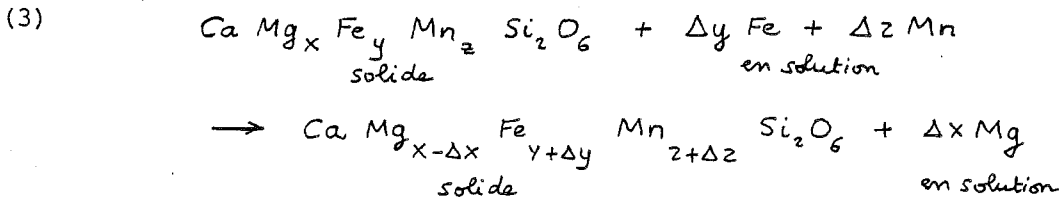 (3) Ca Mg_x Fe_y Mn_z Si_2 O_6 + Δy Fe + Δz Mn
solide en solution
→ Ca Mg_{x-Δx} Fe_{y+Δy} Mn_{z+Δz} Si_2 O_6 + Δx Mg
solide en solution